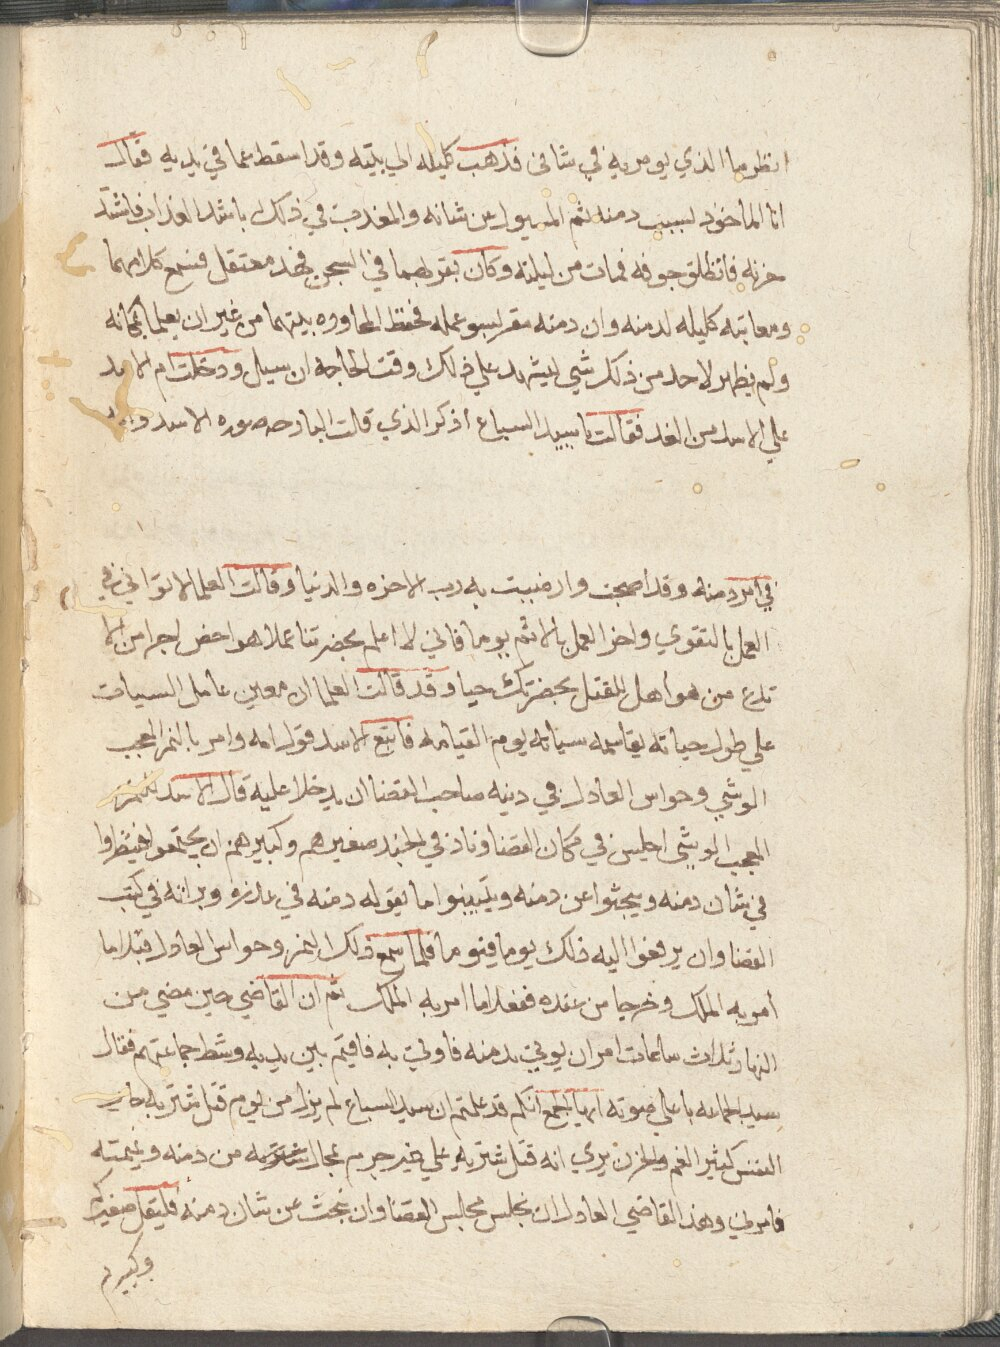 انظر ما الذي يومر به في شاني فذهب كليله الي بيته وقد اسقط بما في يديه فقال
انا الماخود بسبب دمنه ثم المسيول عن شانه والمعذب في ذلك باشد العذاب فاشتد
حزنه فانطلق جوفه فمات من ليلته وكان بقربهما في السجن فهد معتقل فسمع كلامهما
ومعاتبة كليله لدمنه وان دمنه مقر بسو عمله فحفظ المحاوره بينهما من غير ان يعلما بمكانه
ولم يظهر لاحد من ذلك شي ليشهد علي ذلك وقت الحاجة ان سيل ودخلت ام الاسد
علي الاسد من الغد فقالت يا سيد السباع أذكر الذي قلت البارحه صوره الاسد و
في امر دمنه وقد اصبحت وارضيت به رب الاخره والدنيا وقالت العلما لا تواني في
العمل بالتقوي واخر العمل بالاثم يوما فاني لا اعلم بحضرتنا عملا هو احض اجرا من الا
تدع من هو اهل للقتل بحضرتك حيا وقد قالت العلما ان معين عامل السيات
علي طول حياته يقاسمه سياته يوم القيامه فاتبع الاسد قول امه وامر بالنمر المعجب
الوشي وحواس العادل في دينه صاحب القضا ان يدخلا عليه قال الاسد للنمر
المعجب الوشي اجلس في مكان القضا وناد في الجند صغيرهم وكبيرهم ان يجتمعوا لينظروا
في شان دمنه ويبحثوا عن دمنه ويتبينوا ما يقوله دمنه في عذره وبراته في كتب
القضا وان يرفعوا اليه ذلك يوما فيوما فلما سمع ذلك النمر وحواس العادل قبلا ما
أمر به الملك وخرجا من عنده ففعلا ما امر به الملك ثم ان القاضي حين مضي من
النهار ثلاث ساعات امر ان يوتي بدمنه فأوتي به فاقيم بين يديه وسط جماعتهم فقال
سيد الجماعه باعلي صوته ايها الجمع انكم قد علمتم ان سيد السباع لم يزل من يوم قتل شتربه خاير
النفس كثير الغم والحزن يري انه قتل شتربه علي غير جرم بمحال شتربه من دمنه ونميمته
فامرني وهذا القاضي العادل ان نجلس مجلس القضا وان نبحث عن شان دمنه فليقل صغيركم
وكبيركم